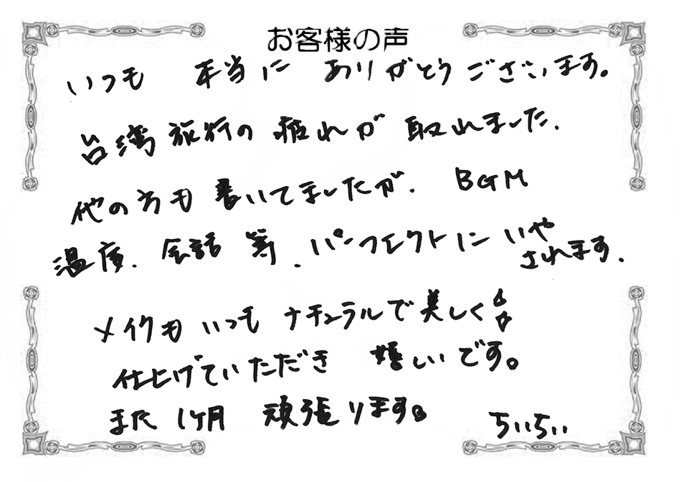 お客様の声
いつも 本当に ありがとうございます。
台湾旅行の疲れが 取れました.
他の方も書いてましたが、BGM
温度、会話 等、パーフェクトに いやされます.
メイクも いつも ナチュラルで美しく
仕上げていただき 嬉しいです。
また 1ヶ月 頑張ります。
ちいちい